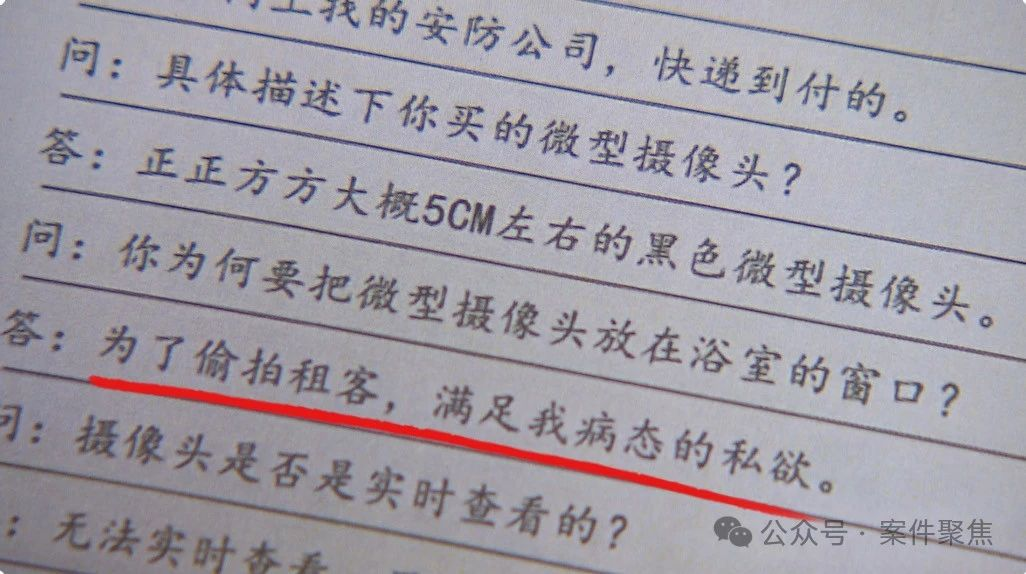 我的安防公司，快递到付的。
问：具体描述下你买的微型摄像头？
答：正正方方大概5CM左右的黑色微型摄像头。
问：你为何要把微型摄像头放在浴室的窗口？
答：为了偷拍租客，满足我病态的私欲。
问：摄像头是否是实时查看的？
：无法实时查看
公众号·案件聚焦